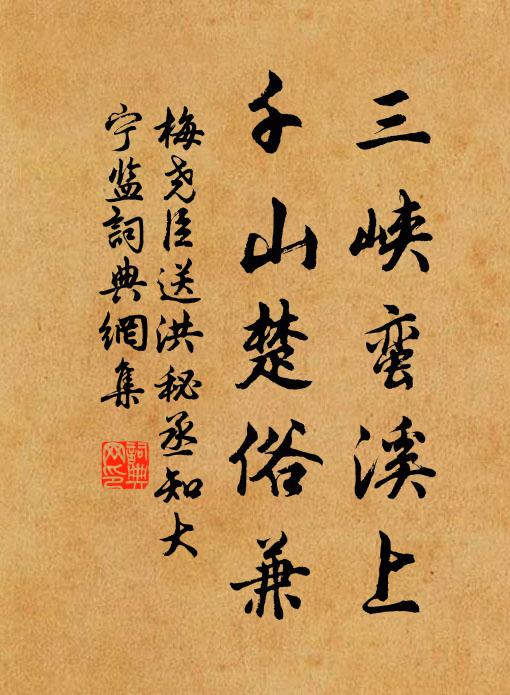 三峡蛮溪上
千山楚俗兼
梅尧臣送洪秘丞知大
宁监詞典網集
詞典
网印